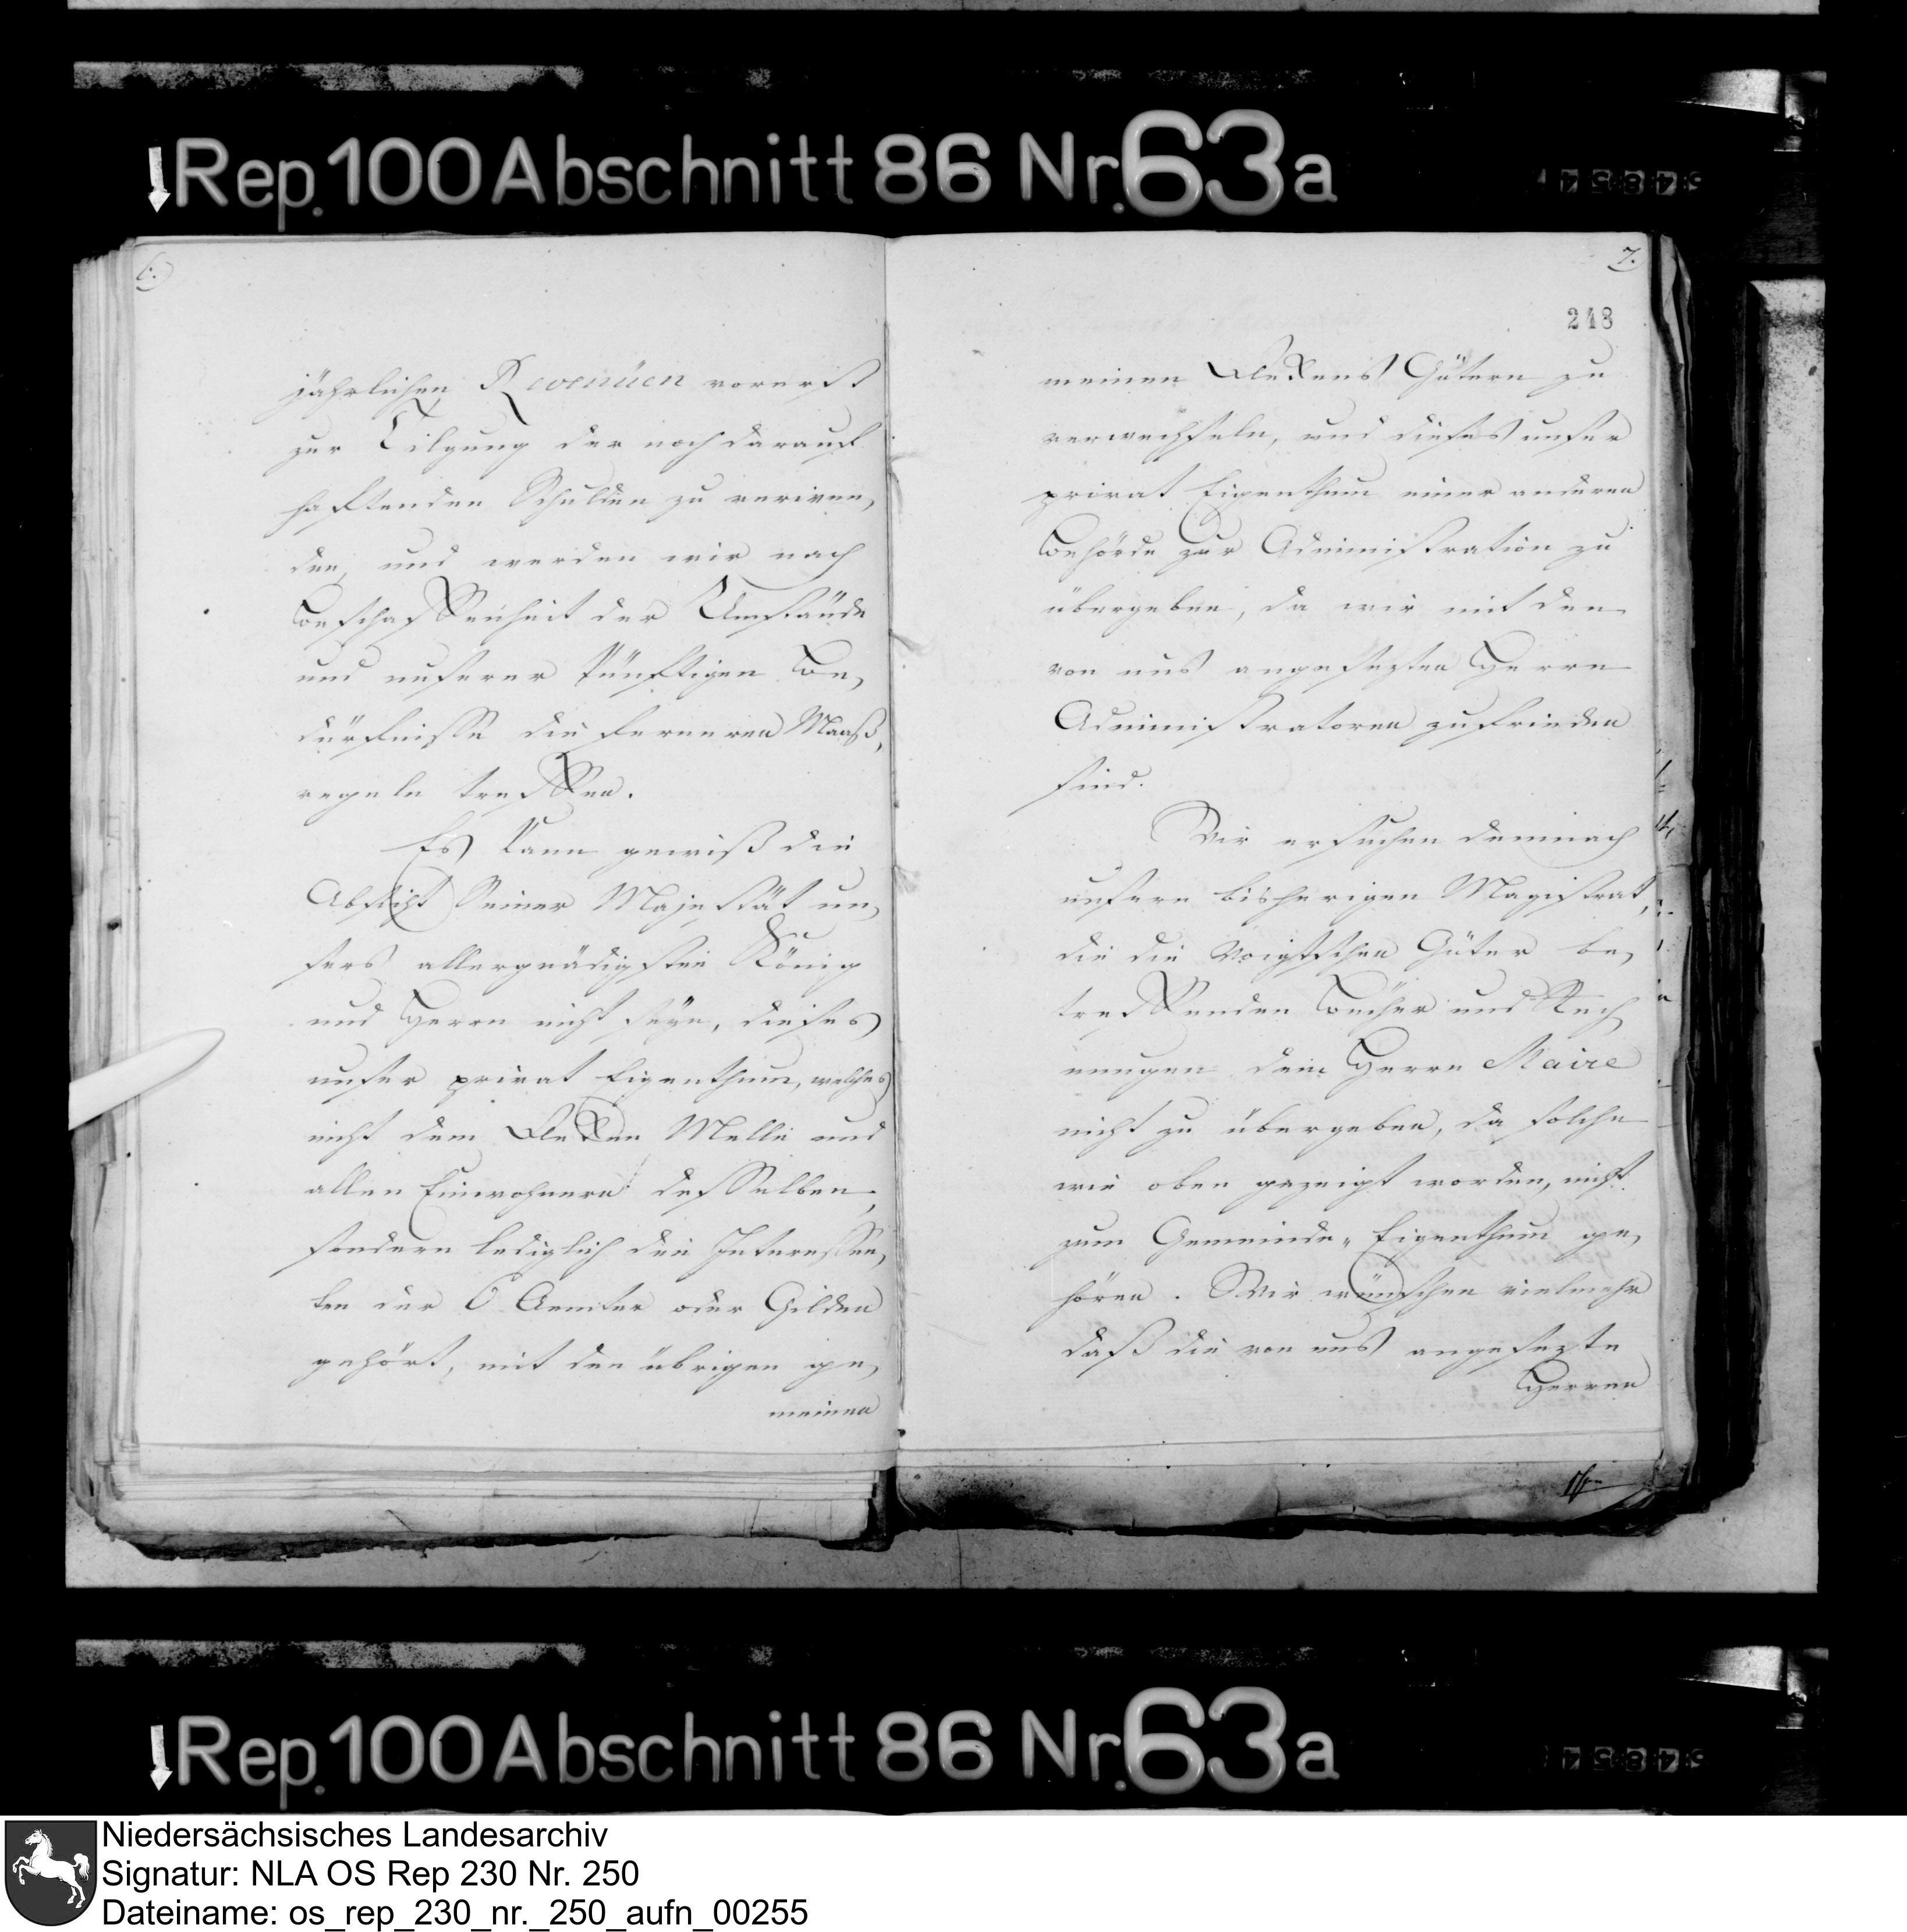 Rep. 100 Abschnitt 86 Nr. 63a
6.
jährlichen Revenüen vorerst
zur Tilgung der noch darauf
haftenden Schulden zu verwen,
den, und werden wir nach
Beschaffenheit der Umstände
und unserer künftigen Be,
dürfnisse die ferneren Maaß,
regeln treffen.
Es kann gewiß die
Absicht Seiner Majestät un,
sers allergnädigsten König
und Herrn nicht seyn, dieses
unser privat Eigenthum, welches
nicht dem Flekken Melle und
allen Einwohnern desselben,
sondern lediglich den Interessen,
ten der 6 Aemter oder Gilden
gehört, mit den übrigen ge,
meinen
7.
248
meinen Flekkens Gütern zu
verwechseln, und dieses unser
privat Eigenthum einer anderen
Behörde zur Administration zu
übergeben, da wir mit den
von uns angesezten Herrn
Administratoren zufrieden
sind.
Wir ersuchen demnach
unsern bisherigen Magistrat,
die die Voigtschen Güter be,
treffenden Bücher und Rech
nungen dem Herrn Maire
nicht zu übergeben, da solche
wie oben gezeigt worden, nicht
zum Gemeinde„ Eigenthum ge,
hören. Wir wünschen vielmehr
daß die von uns angesezte
Herren
Rep. 100 Abschnitt 86 Nr. 63a
Niedersächsisches Landesarchiv
Signatur: NLA OS Rep 230 Nr. 250
Dateiname: os_rep_230_nr._250_aufn_00255